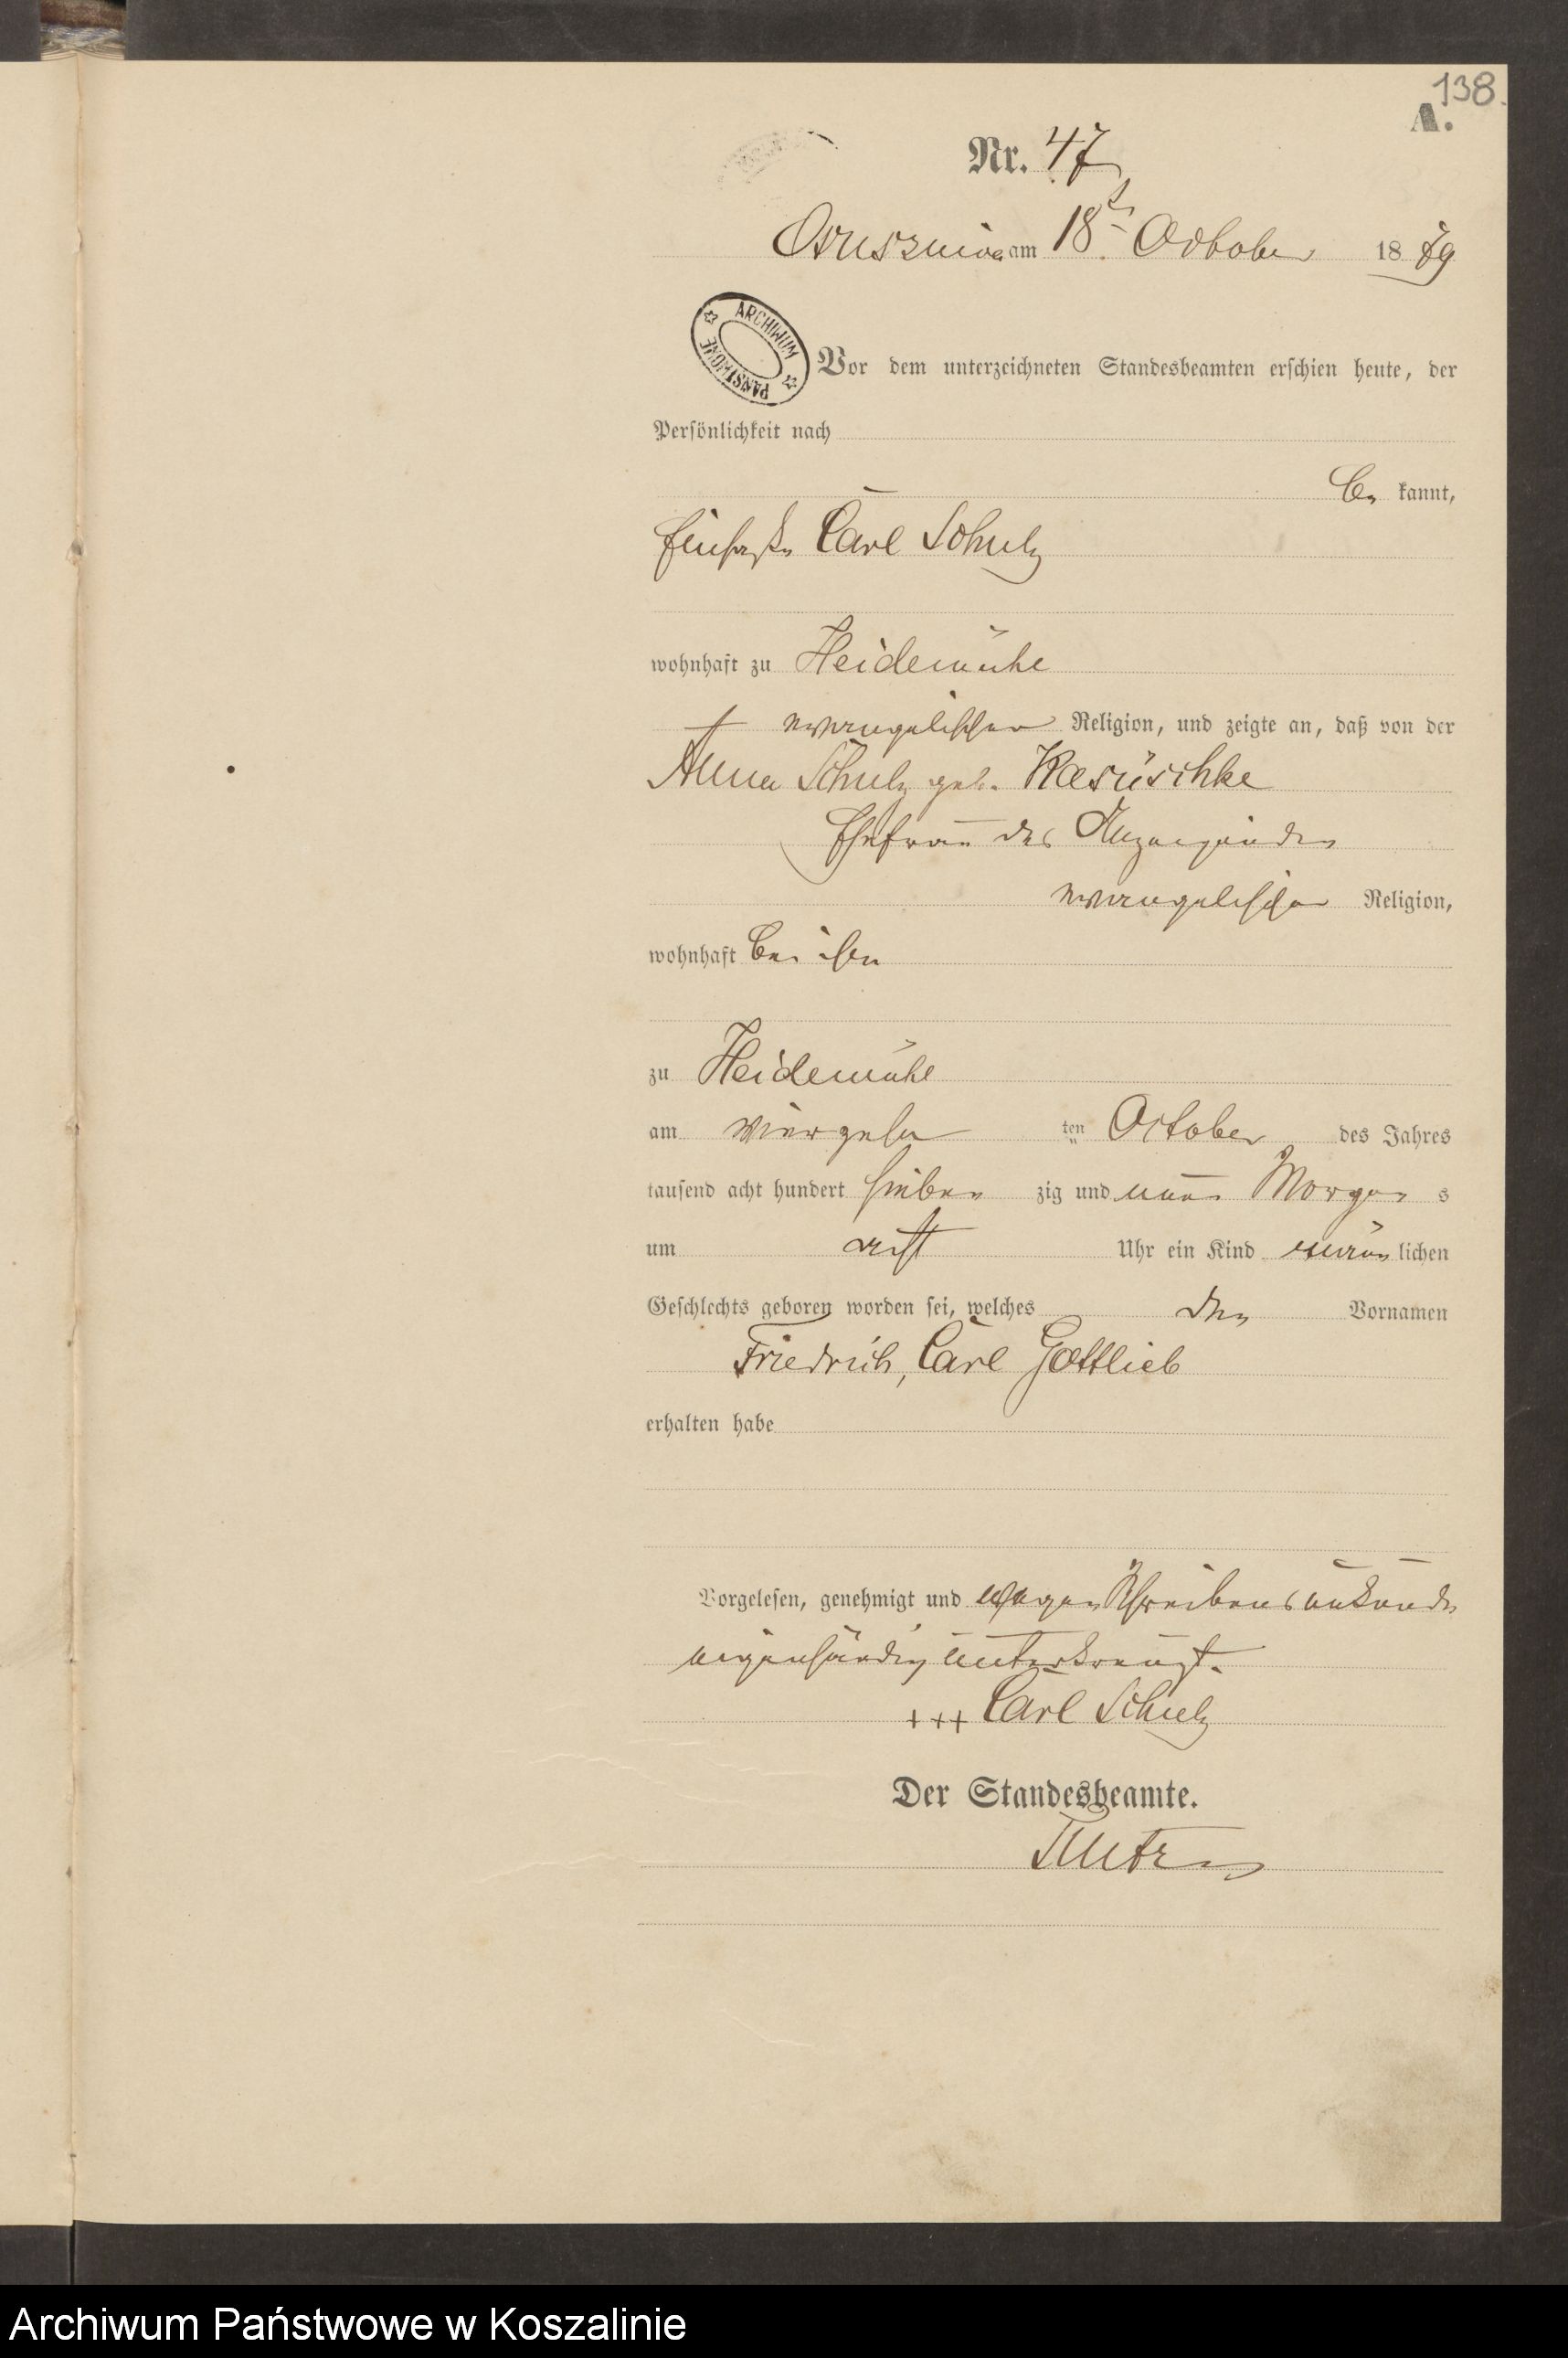 138.
A.
Nr. 47
am 18ten October 1879
ARCHIWUM PAŃSTWOWE
Vor dem unterzeichneten Standesbeamten erschien heute, der
Persönlichkeit nach
be kannt,
Einsaße Carl Schulz
wohnhaft zu Heidemühle
evangelischer Religion, und zeigte an, daß von der
Anna Schulz geb.
Ehefrau des Anzeigenden
evangelischer Religion,
wohnhaft bei ihm
zu Heidemühl
am vierzehn ten October des Jahres
tausend acht hundert sieben zig und neun Morgen s
um acht Uhr ein Kind männlichen
Geschlechts geboren worden sei, welches den Vornamen
Friedrich, Carl Gottlieb
erhalten habe
Vorgelesen, genehmigt und wegen Schreibensunkunde
eigenhändig unterkreuzt.
+++ Carl Schulz
Der Standesbeamte.
Archiwum Państwowe w Koszalinie